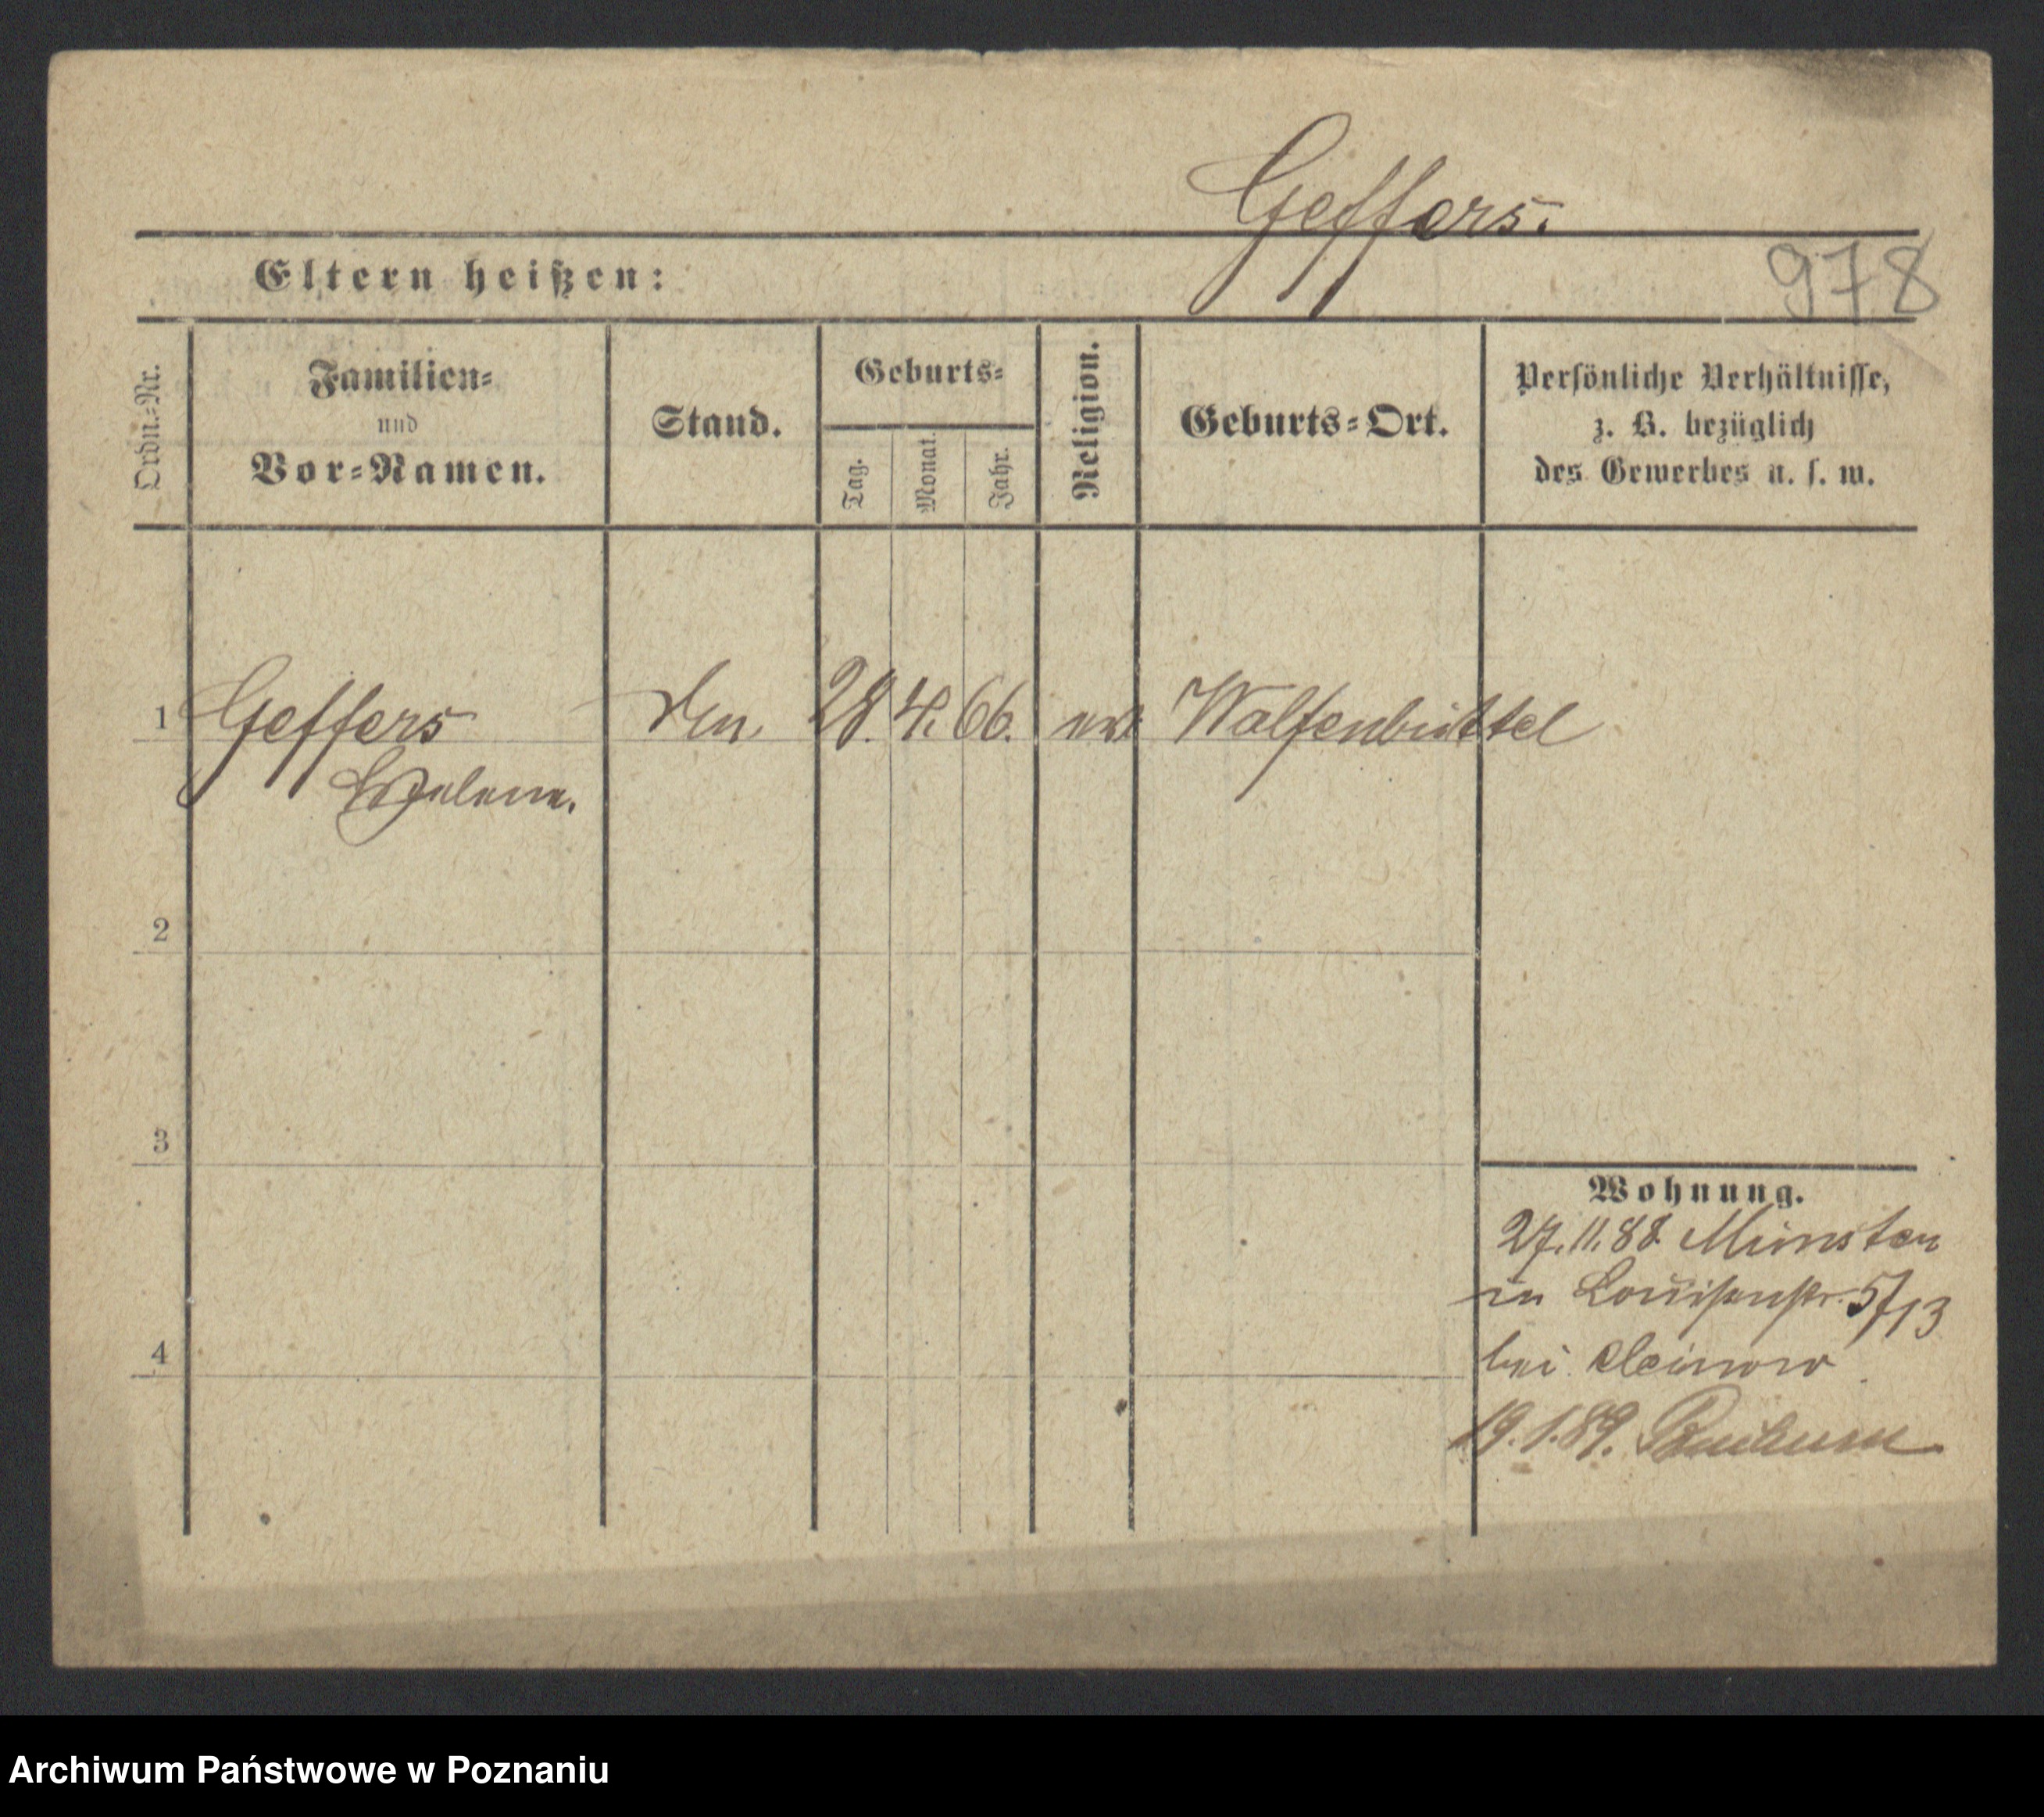 Geffers.
Eltern heißen:
978
Ordn.-Nr.
Familien-
und
Vor-Namen.
Stand.
Geburts-
Tag.
Monat.
Jahr.
Religion.
Geburts-Ort.
Persönliche Verhältnisse,
z. B. bezüglich
des Gewerbes u. s. w.
1 Geffers 28. 4. 66. ev. Wolfenbüttel
Helene.
2
3
4
Wohnung.
27. 11. 88 Münster
in Louisenstr. 5/13
bei
19. 1. 89.
Archiwum Państwowe w Poznaniu